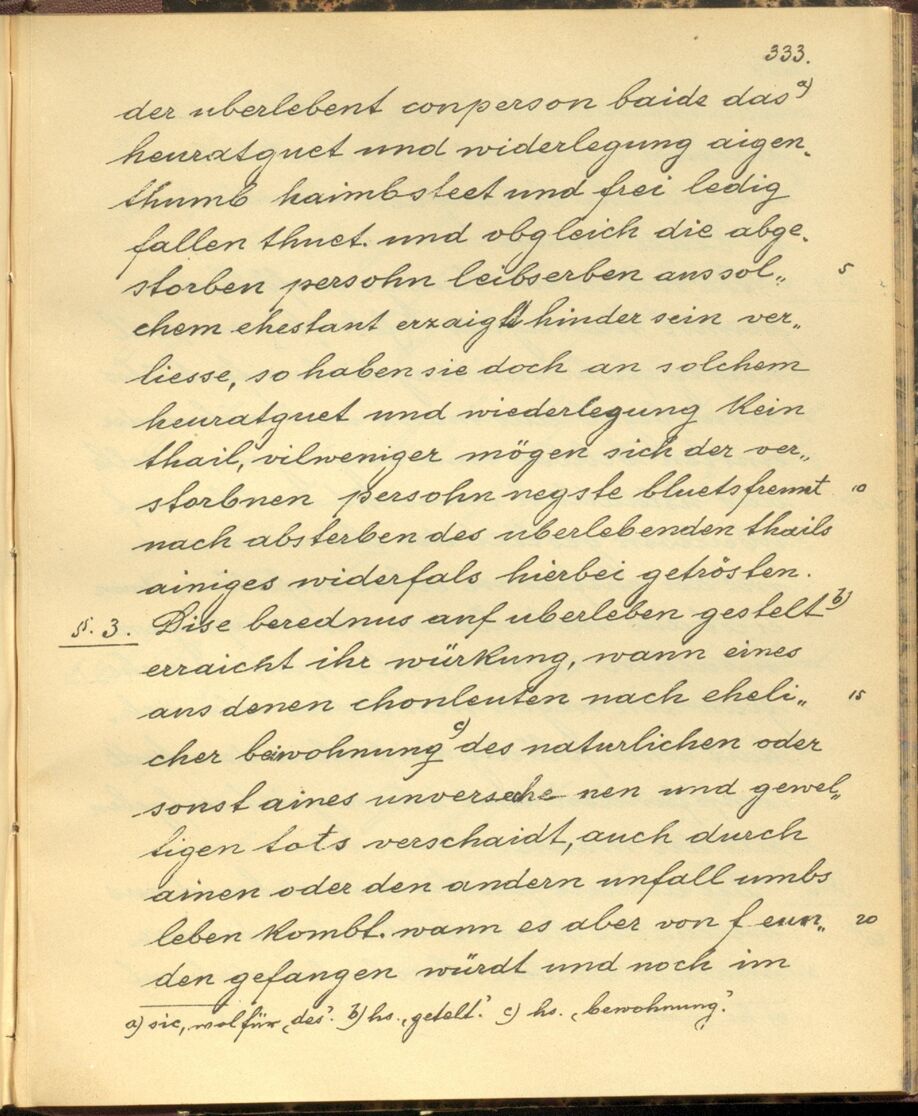 333.
der uberlebent conperson baide das a)
heuratguet und widerlegung aigen-
thumb haimbsteet und frei ledig
fallen thuet. und obgleich die abge-
storben persohn leibserben aus sol„ 5
chem ehestant erzaigt hinder sein ver„
liesse, so haben sie doch an solchem
heuratguet und wiederlegung kein
thail, vilweniger mögen sich der ver„
storbnen persohn negste bluetsfremt 10
nach absterben des uberlebenden thails
ainiges widerfals hierbei getrösten.
§. 3. Dise berednus auf uberleben gestelt b)
erraicht ihr würkung, wann eines
aus denen chonleuten nach eheli„ 15
cher beiwohnung c) des naturlichen oder
sonst aines unversehenen und gewel„
tigen tots verschaidt, auch durch
ainen oder den andern unfall umbs
leben kombt. wann es aber von feun„ 20
den gefangen würdt und noch im
a) sic, wol für ‚des’. b) hs. ‚getelt’. c) hs. ‚bewohnung’.